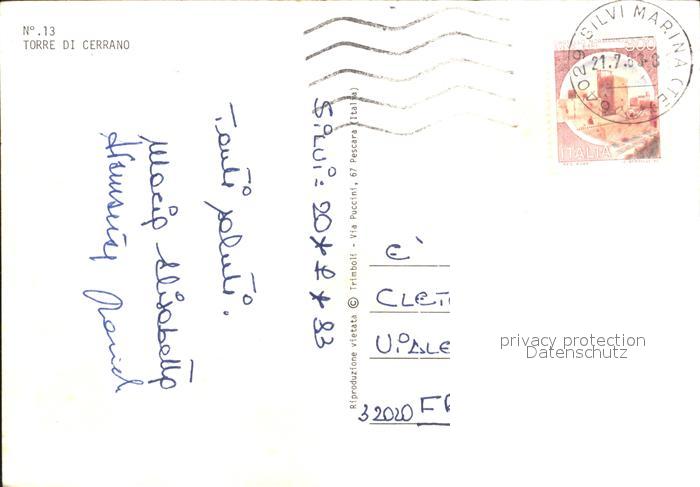 N°.13
TORRE DI CERRANO
64029 SILVI MARINA (TE)
21.7.83-8
ITALIA
Silvi: 20*7*83
Tanti saluti.
Maria Elisabetta
Reproduzione vietata © Trimboli - Via Puccini, 67 Pescara (Italia)
È
CLETI
VIALE
32020 F
privacy protection
Datenschutz